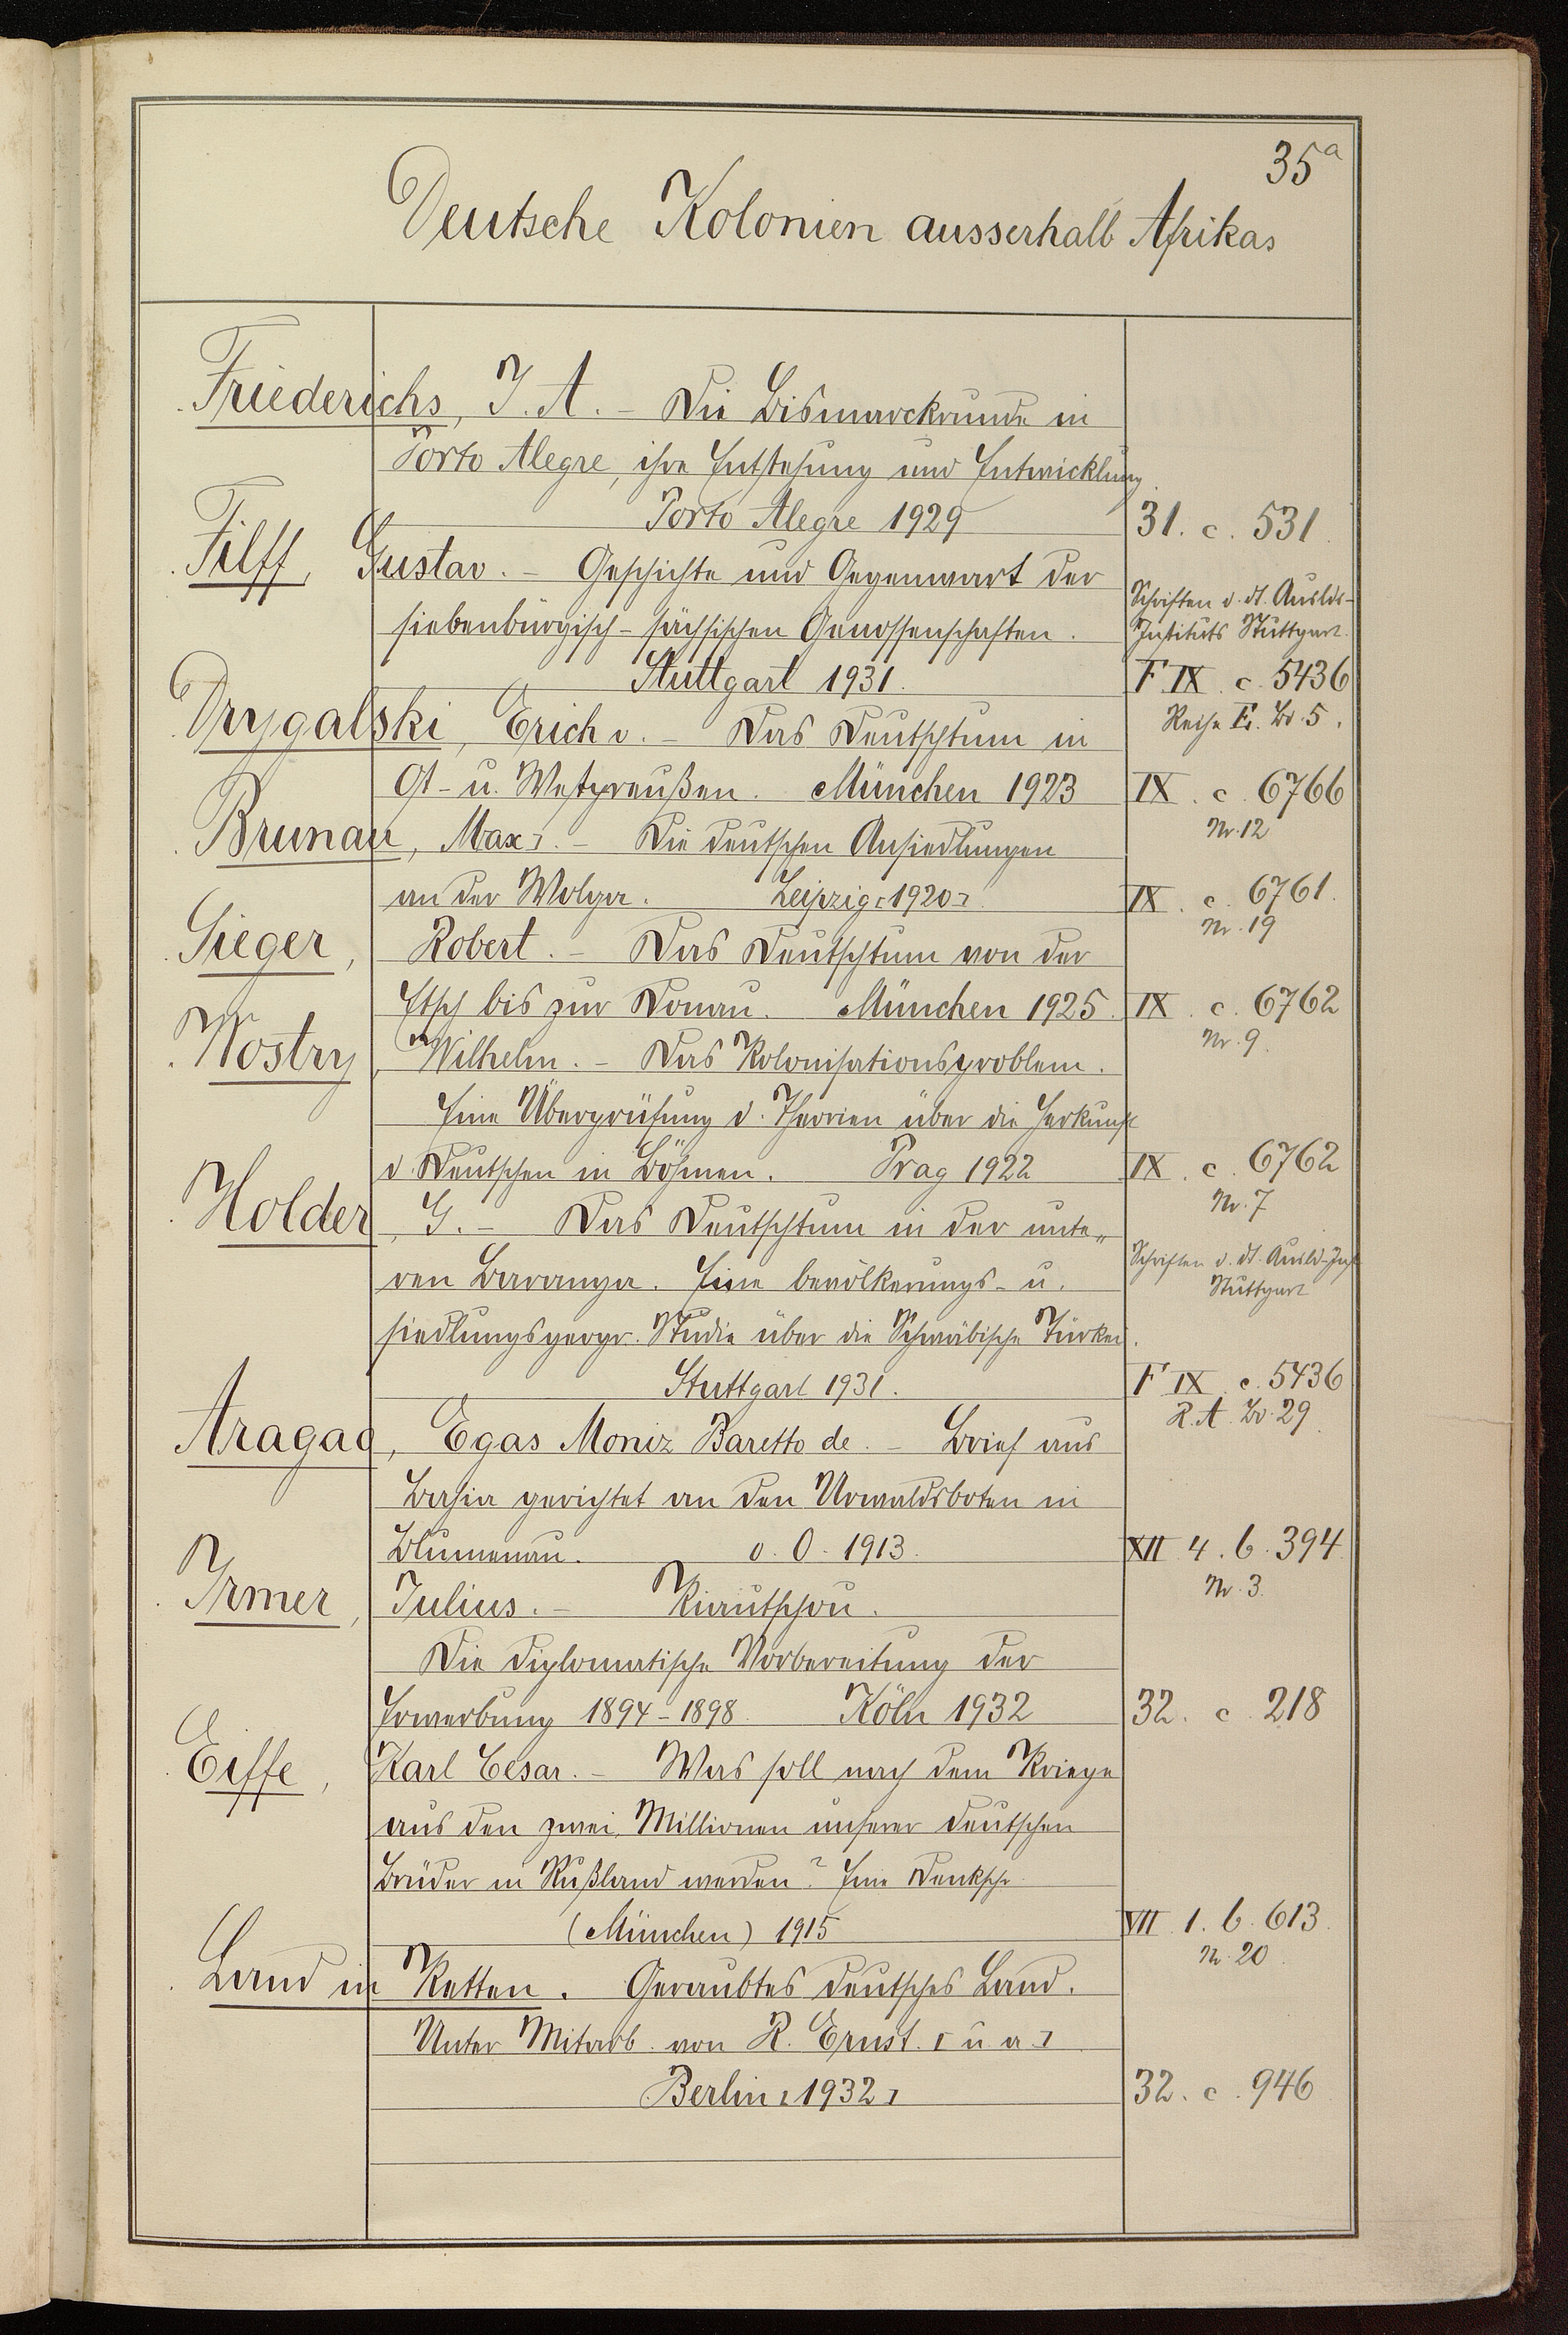 35a
Deutsche Kolonien ausserhalb Afrikas
Friederichs, J. A. – Die Bismarckrunde in
Porto Alegre, ihre Entstehung und Entwicklung.
Porto Alegre 1929 31. c. 531.
Filff, Gustav. – Geschichte und Gegenwart der
Schriften d. dt. Auslds-
siebenbürgisch-sächsischen Genossenschaften.
Instituts Stuttgart.
Stuttgart 1931. F IX. c. 5436
Reihe F. Bd. 5.
Drygalski, Erich v. – Das Deutschtum in
Ost- u. Westpreußen. München 1923 IX. c. 6766
Nr. 12
Brunau, Max]. – Die deutschen Ansiedlungen
an der Wolga. Leipzig [1920]. IX. c. 6761.
Nr. 19
Sieger, Robert. – Das Deutschtum von der
Etsch bis zur Donau. München 1925. IX. c. 6762
Nr. 9.
Wostry, Wilhelm. – Das Kolonisationsproblem.
Eine Überprüfung d. Theorien über die Herkunft
d. Deutschen in Böhmen. Prag 1922 IX. c. 6762
Nr. 7
Holder, G. – Das Deutschtum in der unte-
Schriften d. dt. Ausld-Inst
ren Baranya. Eine bevölkerungs- u.
Stuttgart
siedlungsgeogr. Studie über die Schwäbische Türkei.
Stuttgart 1931. F IX. c. 5436
R. A. Bd. 29.
Aragao, Egas Moniz Baretto de. – Brief aus
Bahia gerichtet an den Urwaldsboten in
Blumenau. o. O. 1913. XII 4. b. 394.
Nr. 3.
Irmer, Julius. – Kiautschou.
Die diplomatische Vorbereitung der
Erwerbung 1894-1898. Köln 1932 32. c. 218
Eiffe, Karl Cesar. – Was soll nach dem Kriege
aus den zwei Millionen unserer deutschen
Brüder in Rußland werden? Eine Denkschr.
(München) 1915 VII. 1. b. 613.
Nr. 20.
Land in Ketten. Geraubtes deutsches Land.
Unter Mitarb. von R. Ernst. [u. a.]
Berlin [1932] 32. c. 946